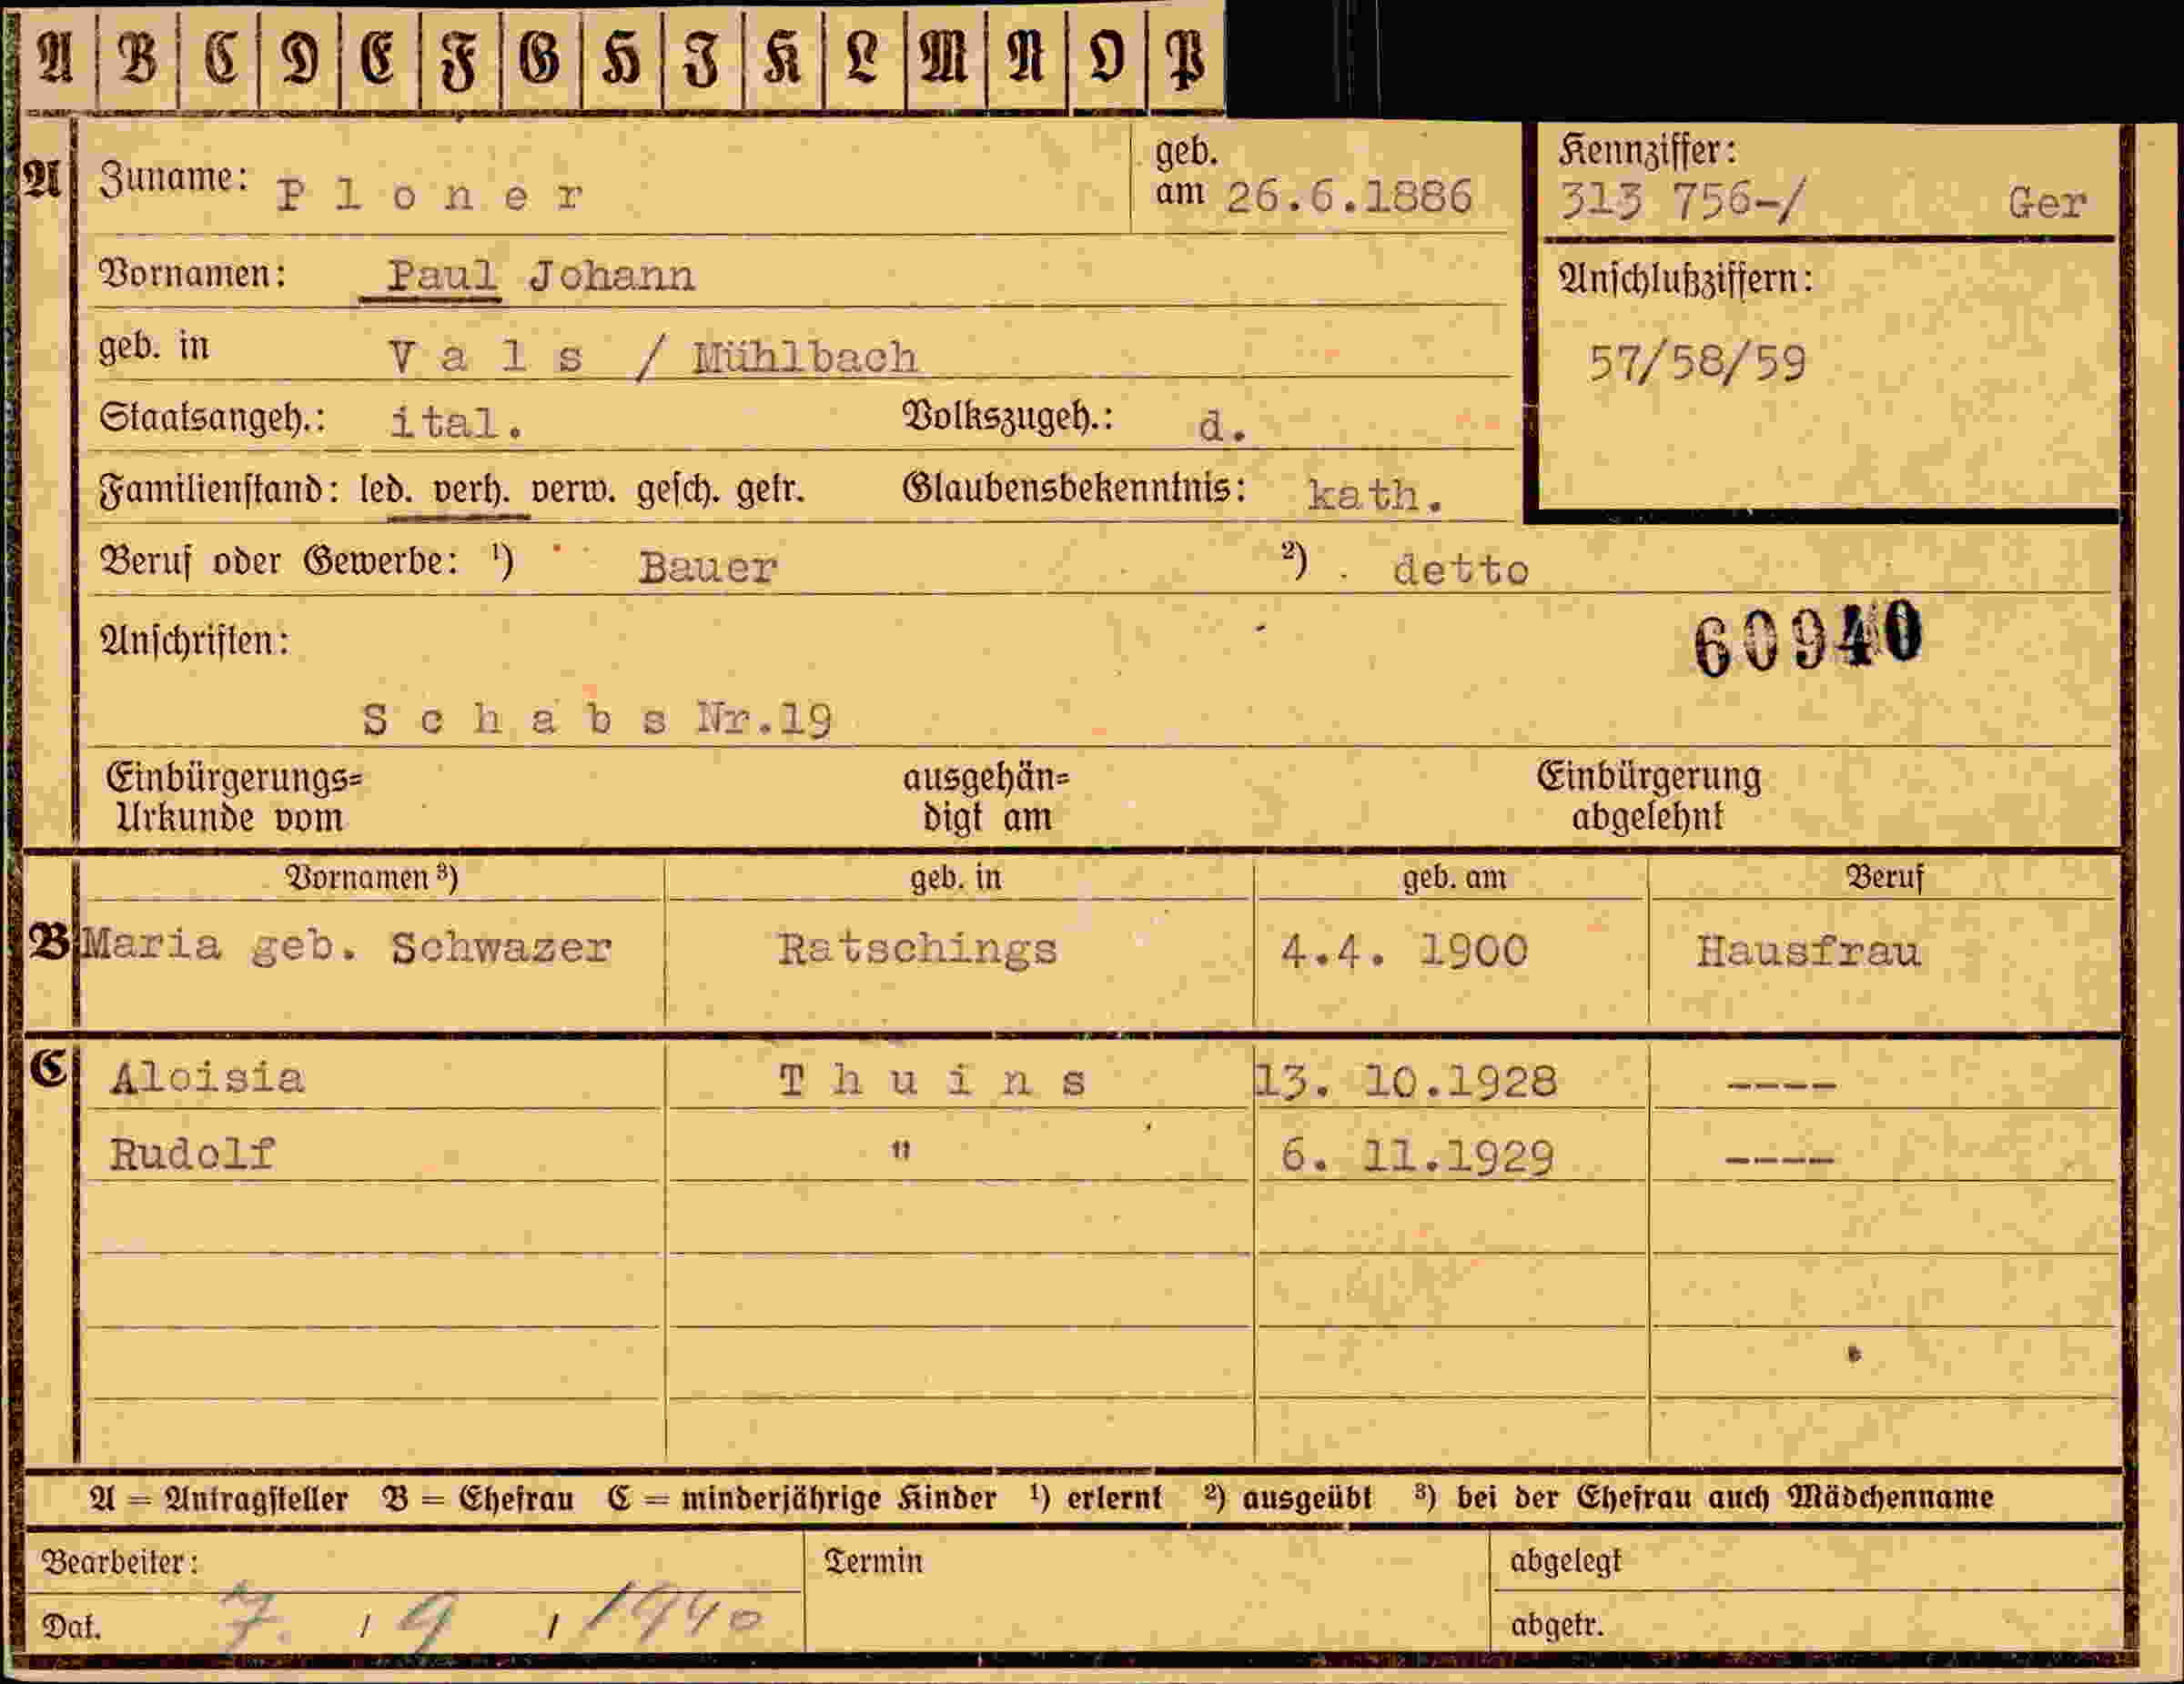 A B C D E F G H I K L M N O P
A Zuname: Ploner geb. am 26.6.1886
Kennziffer:
313 756-/ Ger
Vornamen: Paul Johann
Anschlußziffern:
57/58/59
geb. in Vals / Mühlbach
Staatsangeh.: ital. Volkszugeh.: d.
Familienstand: led. verh. verw. gesch. getr. Glaubensbekenntnis: kath.
Beruf oder Gewerbe: ¹) Bauer ²) detto
Anschriften:
60940
Schabs Nr.19
Einbürgerungs= ausgehän= Einbürgerung
Urkunde vom digt am abgelehnt
Vornamen ³) geb. in geb. am Beruf
B Maria geb. Schwazer Ratschings 4.4. 1900 Hausfrau
C Aloisia Thuins 13. 10.1928 ----
Rudolf " 6. 11.1929 ----
A = Antragsteller B = Ehefrau C = minderjährige Kinder ¹) erlernt ²) ausgeübt ³) bei der Ehefrau auch Mädchenname
Bearbeiter: Termin abgelegt
Dat. 7. / 9 / 1940 abgetr.